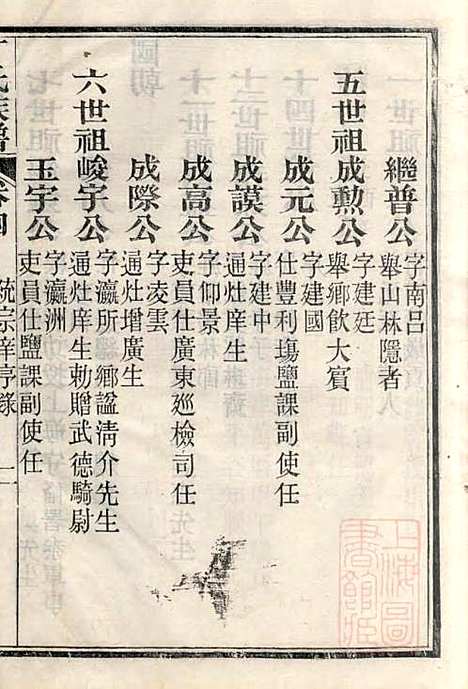 繼普公 字南呂
舉山林隱者
五世祖成勲公 字建廷
舉鄉飲大賓
成元公 字建國
仕豐利塲鹽課副使任
成謨公 字建中
通灶庠生
成高公 字仰景
吏員仕廣東巡檢司任
成際公 字凌雲
通灶增廣生
六世祖峻宇公 字瀛所鄉謚淸介先生
通灶庠生勅贈武德騎尉
玉宇公 字瀛洲
吏員仕鹽課副使任
氏族譜 卷四 統宗 序錄 一
上海圖書館藏